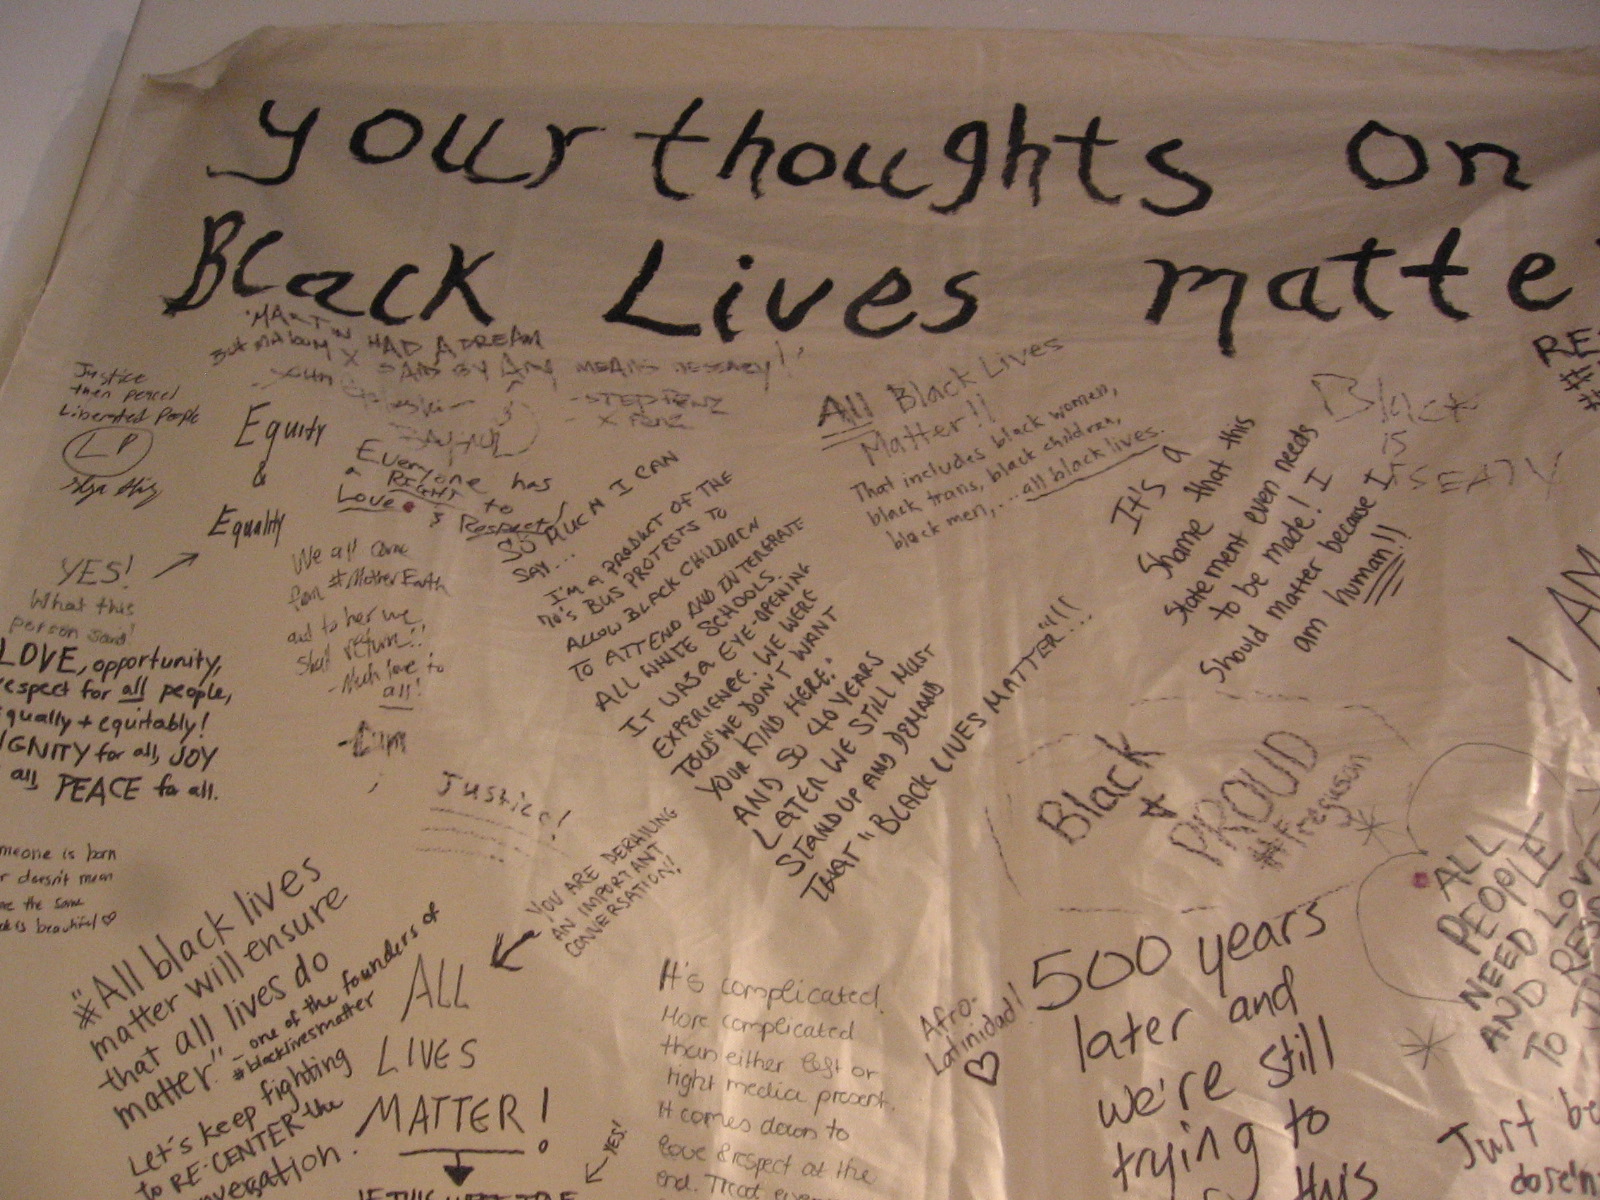 your thoughts on
Black Lives matte
MARTIN HAD A DREAM
BUT
X SAID BY ANY MEANS
Justice
then peace!
Liberated People
LP
Equity
&
Equality
Everyone has
a RIGHT to
Love & Respect!
YES!
What this
person said!
LOVE, opportunity,
espect for all people,
qually + equitably!
IGNITY for all, JOY
all, PEACE for all.
We all come
from #MotherEarth
and to her we
shall return!!
-Much love to
all!
meone is born
r doesn't mean
the same
is beautiful ♡
Justice!
SO MUCH I CAN
SAY...
I'M A PRODUCT OF THE
70'S BUS PROTESTS TO
ALLOW BLACK CHILDREN
TO ATTEND AND INTERGRATE
ALL WHITE SCHOOLS.
IT WAS A EYE-OPENING
EXPERIENCE. WE WERE
TOLD "WE DON'T WANT
YOUR KIND HERE."
AND SO 40 YEARS
LATER WE STILL MUST
STAND UP AND DEMAND
THAT "BLACK LIVES MATTER"!!!...
All Black Lives
Matter!!
That includes black women,
black trans, black children,
black men,... all black lives.
It's a
Shame that this
statement even needs
to be made! I
Should matter because I
am human!!
Black
IS
I AM
Black
&
PROUD
#Ferguson
ALL
PEOPLE
NEED LOVE
AND
TO
YOU ARE DERAILING
AN IMPORTANT
CONVERSATION!!
"*All black lives
matter will ensure
that all lives do
matter." - one of the founders of
#blacklivesmatter
Let's keep fighting
to RE-CENTER the
ALL
LIVES
MATTER!
YES!
It's complicated.
More complicated
than either left or
right media present.
It comes down to
love & respect at the
end. Treat
Afro-
Latinidad!
♡
500 years
later and
we're still
trying to
this
Just